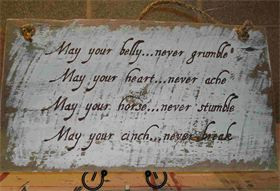 May your belly...never grumble
May your heart...never ache
May your horse...never stumble
May your cinch...never break